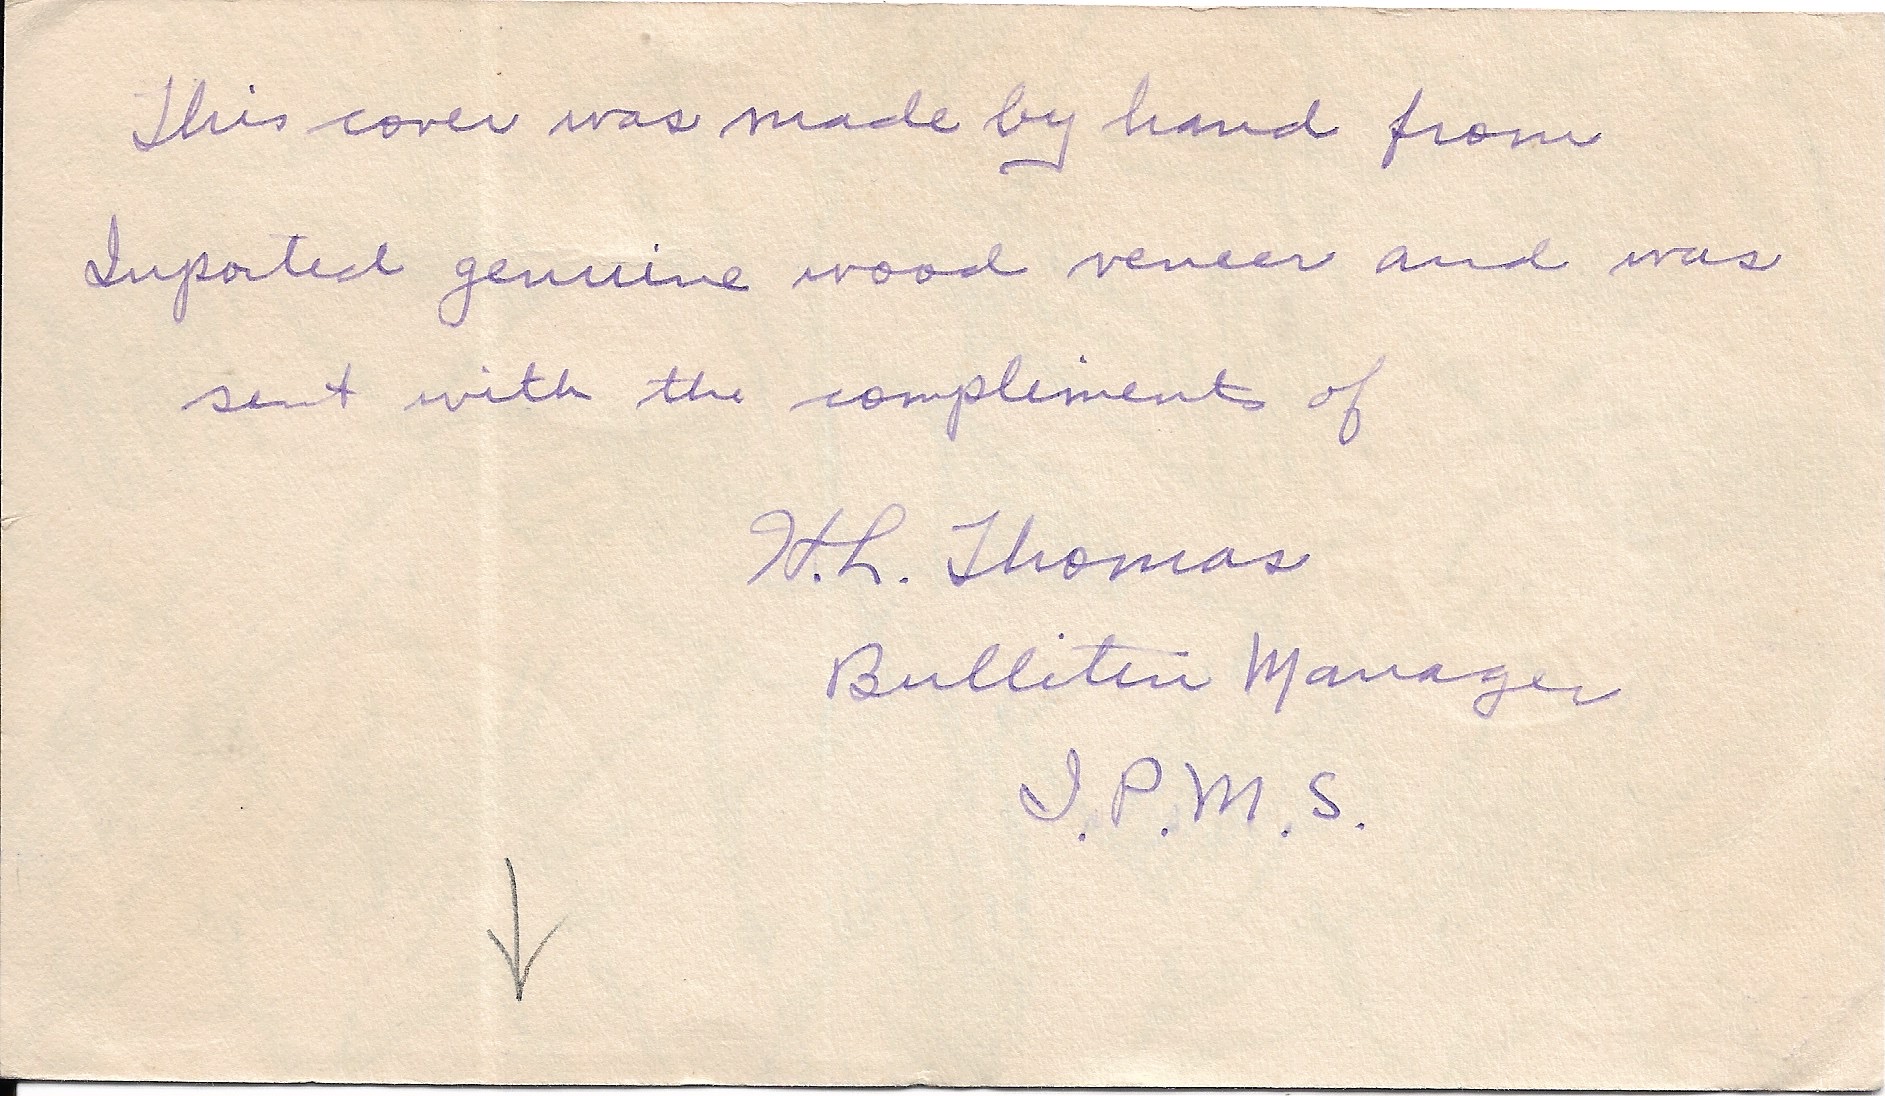 This cover was made by hand from
Imported genuine wood veneer and was
sent with the compliments of
H.L. Thomas
Bullitin Manager
I.P.M.S.